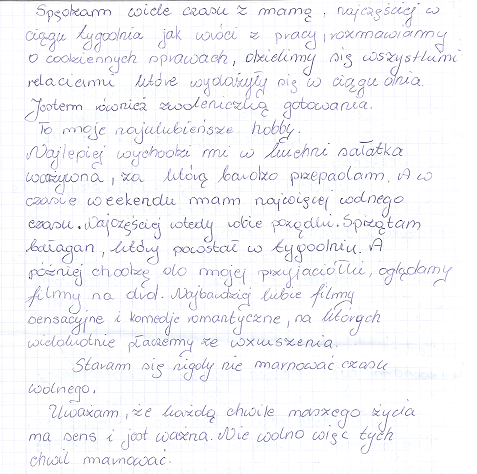 Spędzam wiele czasu z mamą, najczęściej w
ciągu tygodnia jak wróci z pracy, rozmawiamy
o codziennych sprawach, dzielimy się wszystkimi
relaciami które wydażyły się w ciągu dnia.
Jestem również zwoleniczką gotowania.
To moje najulubieńsze hobby.
Najlepiej wychodzi mi w kuchni sałatka
warzywna, za którą bardzo przepadam. A w
czasie weekendu mam najwięcej wolnego
czasu. Najczęściej wtedy robie porządki. Sprzątam
bałagan, który powstał w tygodniu. A
później chodzę do mojej przyjaciółki, oglądamy
filmy na dvd. Najbardziej lubie filmy
sensacyjne i komedje romantyczne, na których
wielokrotnie płaczemy ze wzruszenia.
Staram się nigdy nie marnować czasu
wolnego.
Uważam, że każdą chwile naszego życia
ma sens i jest ważna. Nie wolno więc tych
chwil marnować.